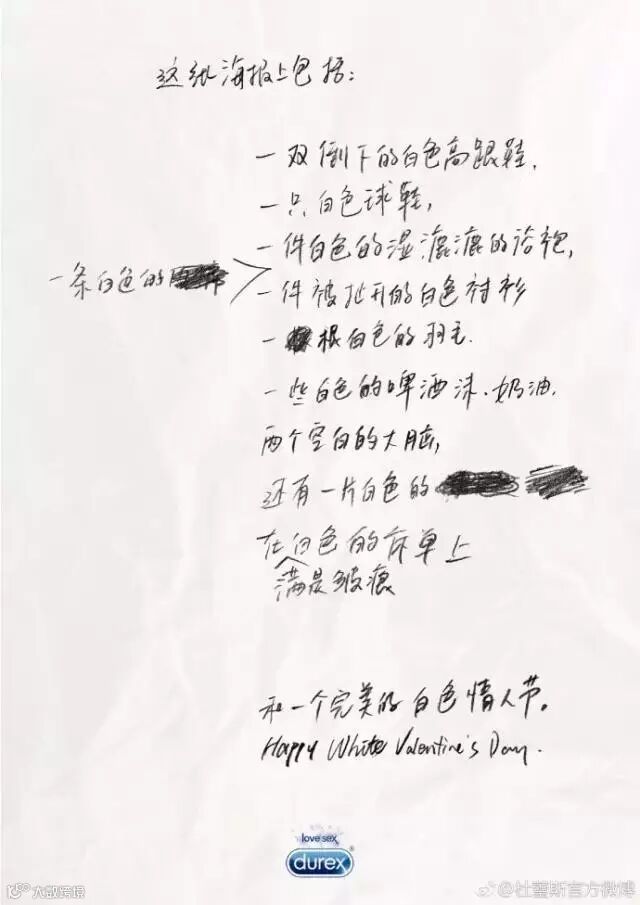 这纸海报上包括：
一双倒下的白色高跟鞋，
一只白色球鞋，
一件白色的湿漉漉的浴袍，
一条白色的
一件被扯开的白色衬衫
一根白色的羽毛
一些白色的啤酒沫、奶油，
两个空白的大脑，
还有一片白色的
在白色的床单上
满是皱痕
和一个完美的白色情人节。
Happy White Valentine's Day.
love sex
durex
大数跨境
@杜蕾斯官方微博